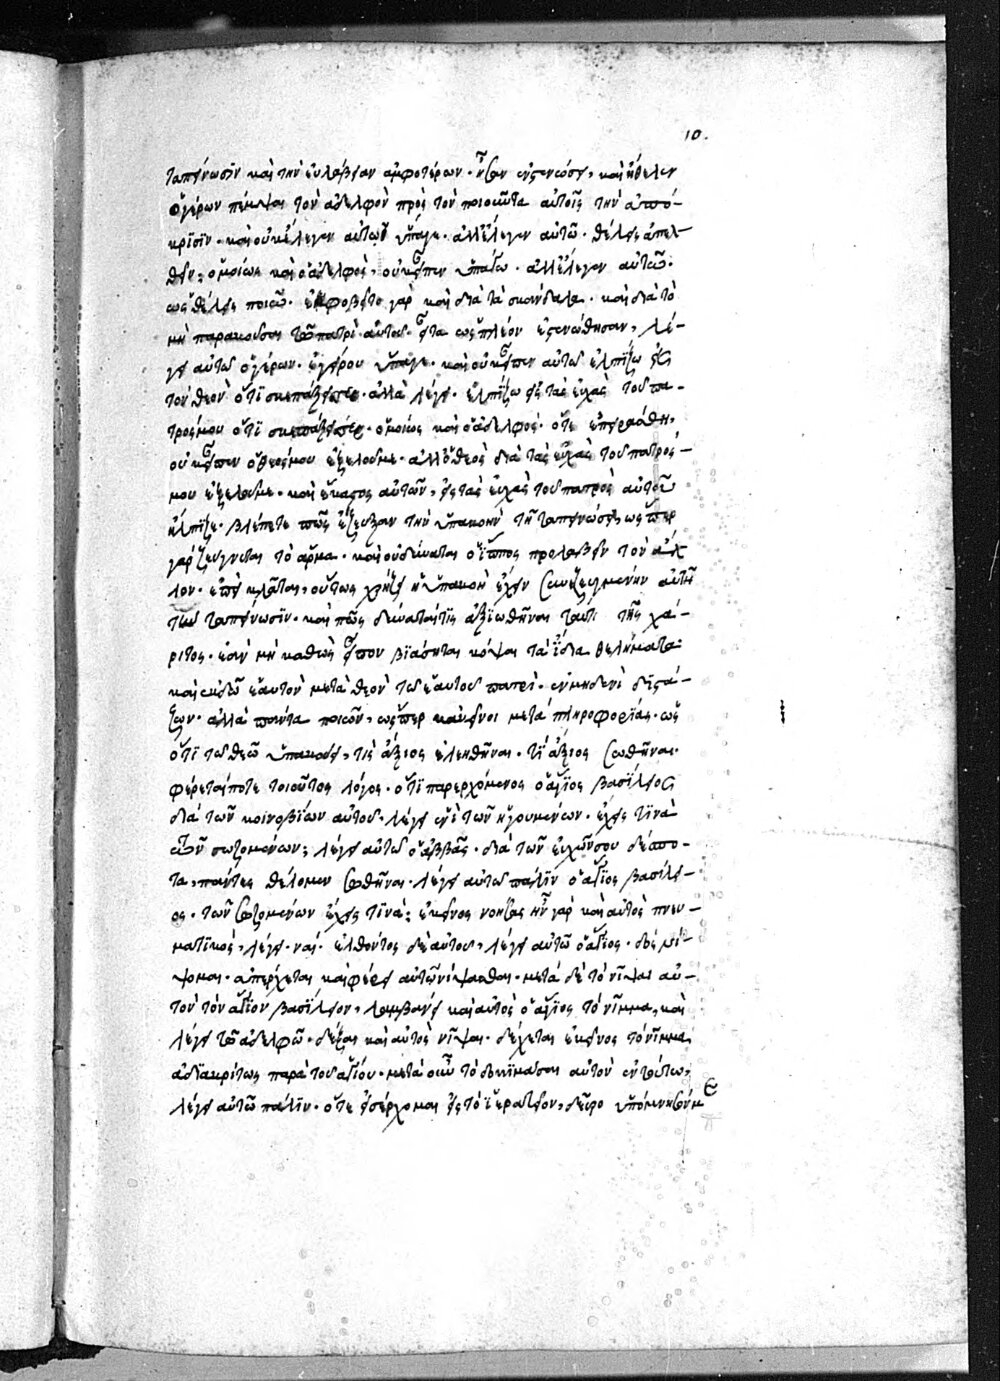 10.
ταπείνωσϊν καὶ τὴν ἐυλάβειαν ἀμφοτέρων· ἦσαν ἐν ξενώσει, καὶ ἤθελεν
ὁ γέρων πέμψαι τὸν ἀδελφὸν πρὸς τὸν ποιοῦντα αὐτοῖς τὴν ἀπό-
κρϊσϊν· καὶ οὐκ ἔλεγεν αὐτῶ ὕπαγε· ἀλλ' ἔλεγεν αὐτῶ· θέλεις ἀπελ-
θεῖν; ὁμοίως καὶ ὁ ἀδελφὸς, οὐκ εἶπεν ὑπάγω· ἀλλ' ἔλεγεν αὐτῶ·
ὡς θέλεις ποιῶ· ἐφοβεῖτο γὰρ καὶ διὰ τὰ σκάνδαλα· καὶ διὰ τὸ
μὴ παρακοῦσαι τῶ πατρὶ αὐτοῦ· εἶτα ὡς πλέον ἐξενώθησαν, λέ-
γει αὐτῶ ὁ γέρων· ἐγείρου ὕπαγε· καὶ οὐκ εἶπεν αὐτῶ ἐλπίζω εἰς
τὸν θεὸν ὅτϊ σκεπάζει σε· ἀλλὰ λέγει· ἐλπίζω εἰς τὰς εὐχὰς τοῦ πα-
τρός μου ὅτϊ σκεπάζει σε· ὁμοίως καὶ ὁ ἀδελφός· ὅτε ἐπειράσθη,
οὐκ εἶπεν ὁ θεός μου ἐξελοῦ με· ἀλλ' ὁ θεὸς διὰ τὰς εὐχὰς τοῦ πατρός-
μου ἐξελοῦ με· καὶ ἕκαστος αὐτῶν, εἰς τὰς εὐχὰς τοῦ πατρὸς αὐτοῦ
ἤλπϊζε· βλέπετε πῶς ἔζευξαν τὴν ὑπακοὴν τῆ ταπεινώσει, ὥσπερ
γὰρ ζεύγνυται τὸ ἅρμα· καὶ οὐ δύναται ὁ ἵππος προλαβεῖν τὸν ἄλ
λον· ἐπεὶ κλᾶται, οὕτως χρήζει ἡ ὑπακοὴ ἔχειν συνεζευγμένην αὐτῆ
τὴν ταπείνωσϊν· καὶ πῶς δύναταί τϊς ἀξϊωθῆναι ταύτης τῆς χά-
ριτος· ἐὰν μὴ καθὼς εἶπον βϊάσηται κόψαι τὰ ἴδϊα θελήματα
καὶ ἐκδῶ ἑαυτὸν μετὰ θεὸν τῶ ἑαυτοῦ πατρὶ· ἐν μηδενὶ διστά-
ζων· ἀλλὰ πάντα ποιῶν, ὥσπερ κἀκεῖνοι μετὰ πληροφορίας· ὡς
ὅτϊ τῶ θεῶ ὑπακούει, τίς ἄξιος ἐλεηθῆναι· τί ἄξιος σωθῆναι·
φέρεταί ποτε τοιοῦτος λόγος· ὅτϊ παρερχόμενος ὁ ἅγϊος βασίλειος
διὰ τῶν κοινοβϊων αὐτοῦ, λέγει ἑνὶ τῶν ἡγουμένων· ἔχεις τϊνὰ
τῶν σωζομένων; λέγει αὐτῶ ὁ ἀββᾶς· διὰ τῶν εὐχῶν σου δέσπο-
τα, πάντες θέλομεν σωθῆναι· λέγει αὐτῶ πάλϊν ὁ ἅγϊος βασίλει-
ος· τῶν σωζομένων ἔχεις τϊνὰ; ἐκεῖνος νοήσας ἦν γὰρ καὶ αὐτὸς πνευ-
ματϊκὸς, λέγει· ναί· ἐλθόντος δὲ αὐτοῦ, λέγει αὐτῶ ὁ ἅγϊος· δός νί-
ψομαι· ἀπέρχεται καὶ φέρει αὐτῶ νίψασθαι· μετὰ δὲ τὸ νῖψαι αὐ-
τὸν τὸν ἅγϊον βασίλειον, λαμβάνει καὶ αὐτὸς ὁ ἅγϊος τὸ νίμμα, καὶ
λέγει τῶ ἀδελφῶ· δέξαι καὶ αὐτὸς νῖψαι· δέχεται ἐκεῖνος τὸ νίμμα
ἀδϊακρίτως παρὰ τοῦ ἁγίου· μετὰ οὖν τὸ δοκϊμάσαι αὐτὸν ἐν τούτω,
λέγει αὐτῶ πάλϊν· ὅτε εἰσέρχομαι εἰς τὸ ἱερατεῖον, δεῦρο ὑπόμνησόν με